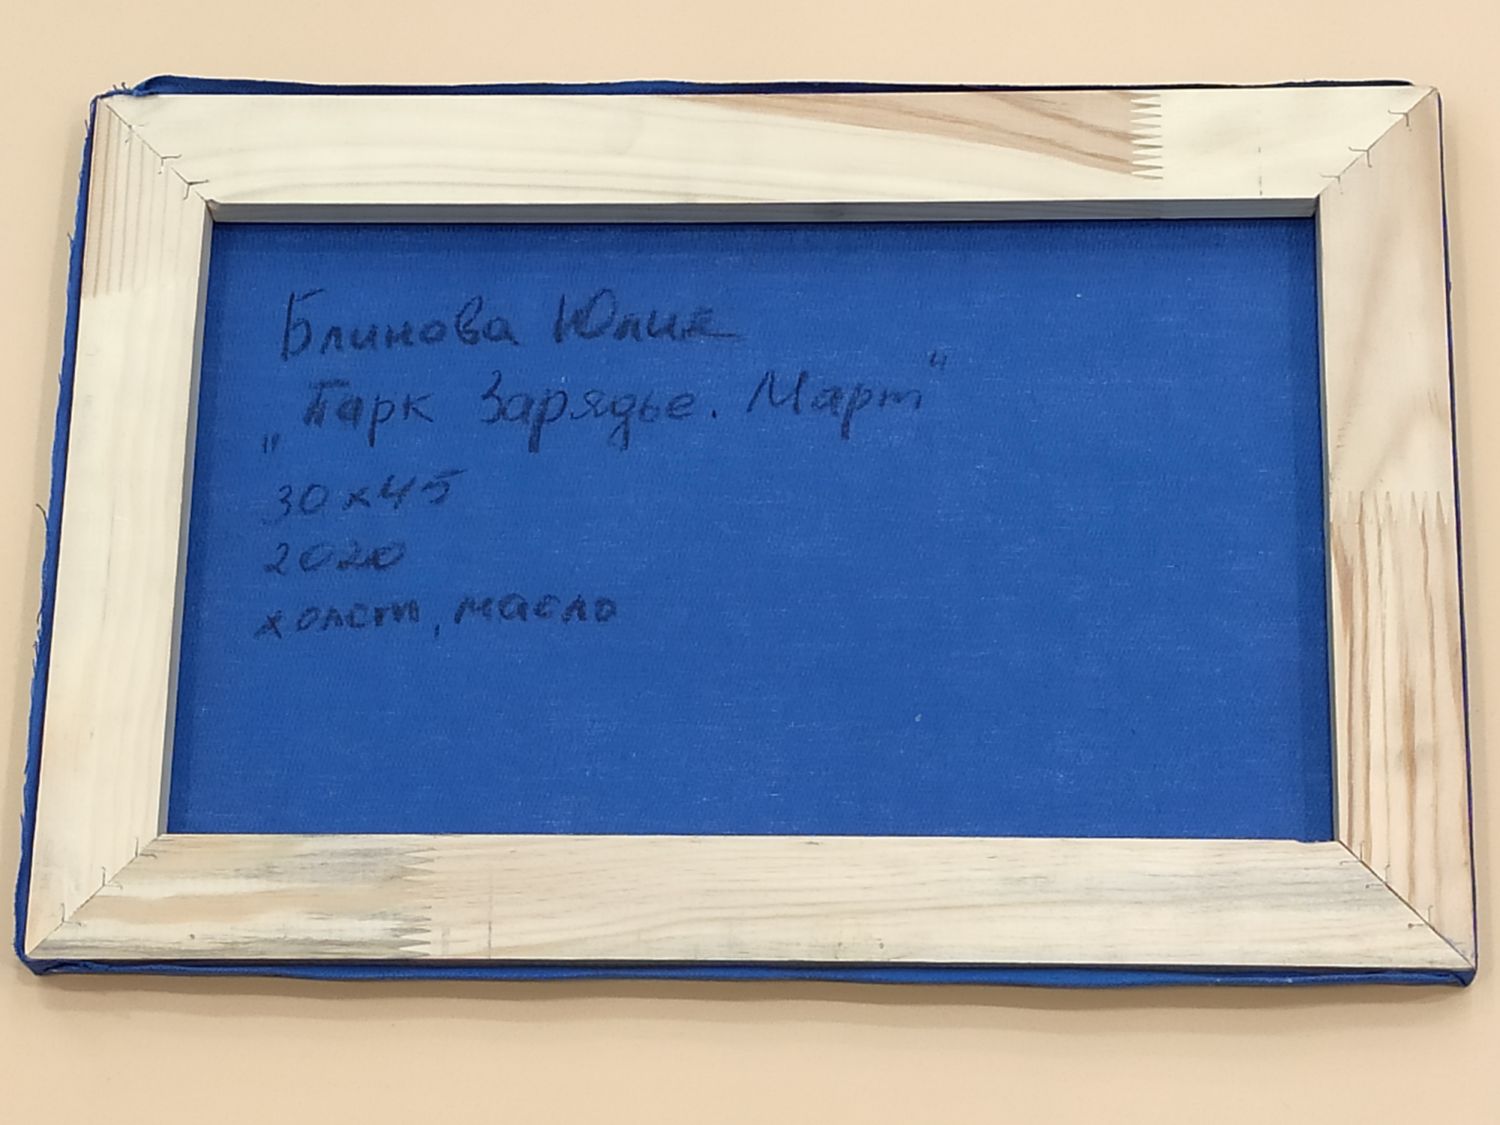 Блинова Юлия
„Парк Зарядье. Март“
30х45
2020
холст, масло